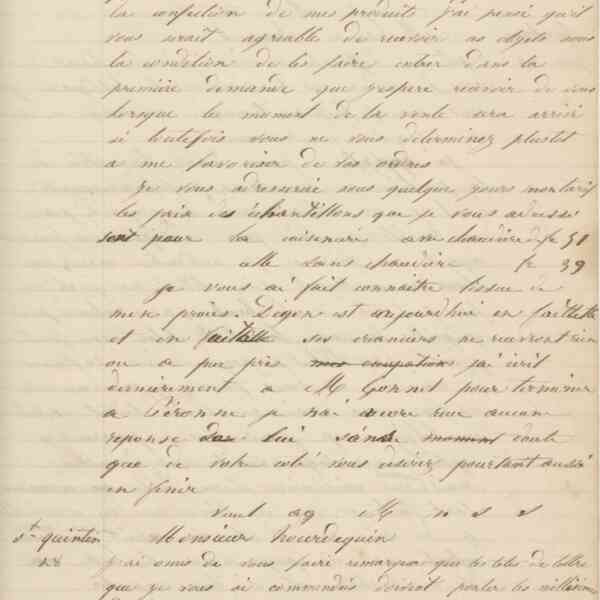 la confection de mes produits j'ai pensé qu'il
vous serait agréable de recevoir ces objets sous
la condition de les faire entrer dans la
première demande que j'espere recevoir de vous
lorsque le moment de la vente sera arrivé
si toutefois vous ne vous determinez plustot
a me favoriser de vos ordres
Je vous adresserai sous quelques jours mon tarif
les prix des échantillons que je vous adresse
sont pour la cuisinière avec chaudière fr 51
elle sans chaudière fr 39
Je vous ai fait connaitre l'issue de
mon procès. Digon est aujourd'hui en faillite
et en faillite ses créanciers ne recevront rien
ou a peu près mes occupations j'ai écrit
dernièrement a M Gonnet pour terminer
a Péronne je n'ai encore reçu aucune
reponse de lui sans moment doute
que de votre coté vous desirez pourtant aussi
en finir
veuil ag M n s s
St quentin Monsieur hourdequin
J'ai omis de vous faire remarquer que les toles de
que je vous ai commandés doivent porter les millésimes